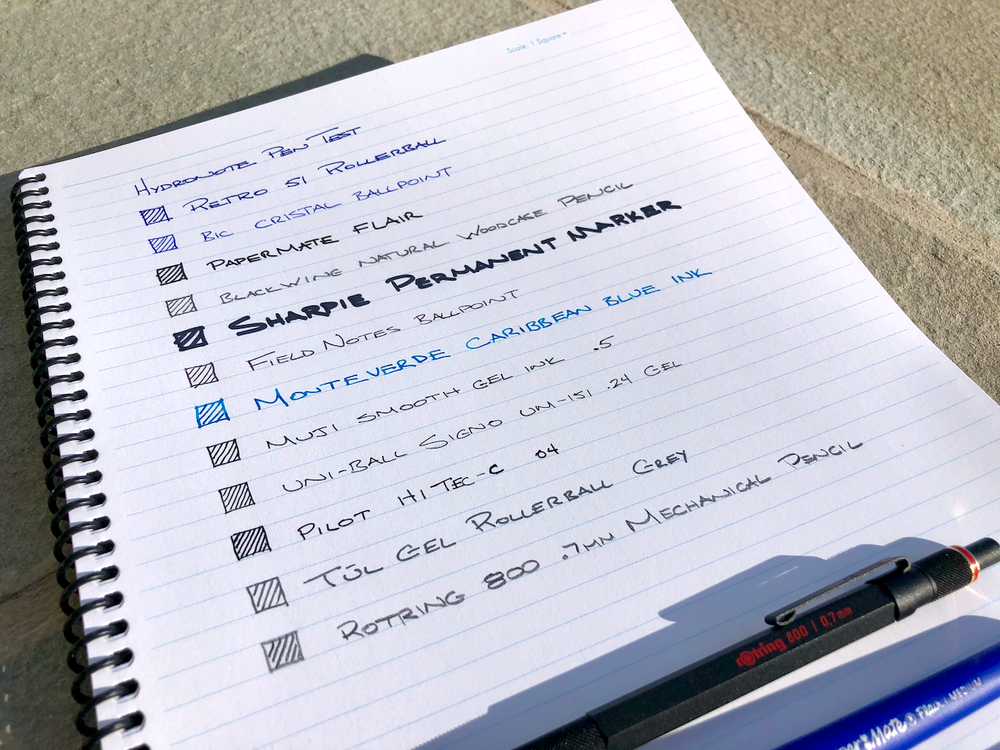 Scale: 1 Square =
HYDRONOTE PEN TEST
RETRO 51 ROLLERBALL
BIC CRISTAL BALLPOINT
PAPERMATE FLAIR
BLACKWING NATURAL WOODCASE PENCIL
SHARPIE PERMANENT MARKER
FIELD NOTES BALLPOINT
MONTEVERDE CARIBBEAN BLUE INK
MUJI SMOOTH GEL INK .5
UNI-BALL SIGNO UM-151 .28 GEL
PILOT HI TEC-C 04
TŪL GEL ROLLERBALL GREY
ROTRING 800 .7MM MECHANICAL PENCIL
rotring 800 | 0,7mm
Mate Flair MEDIUM